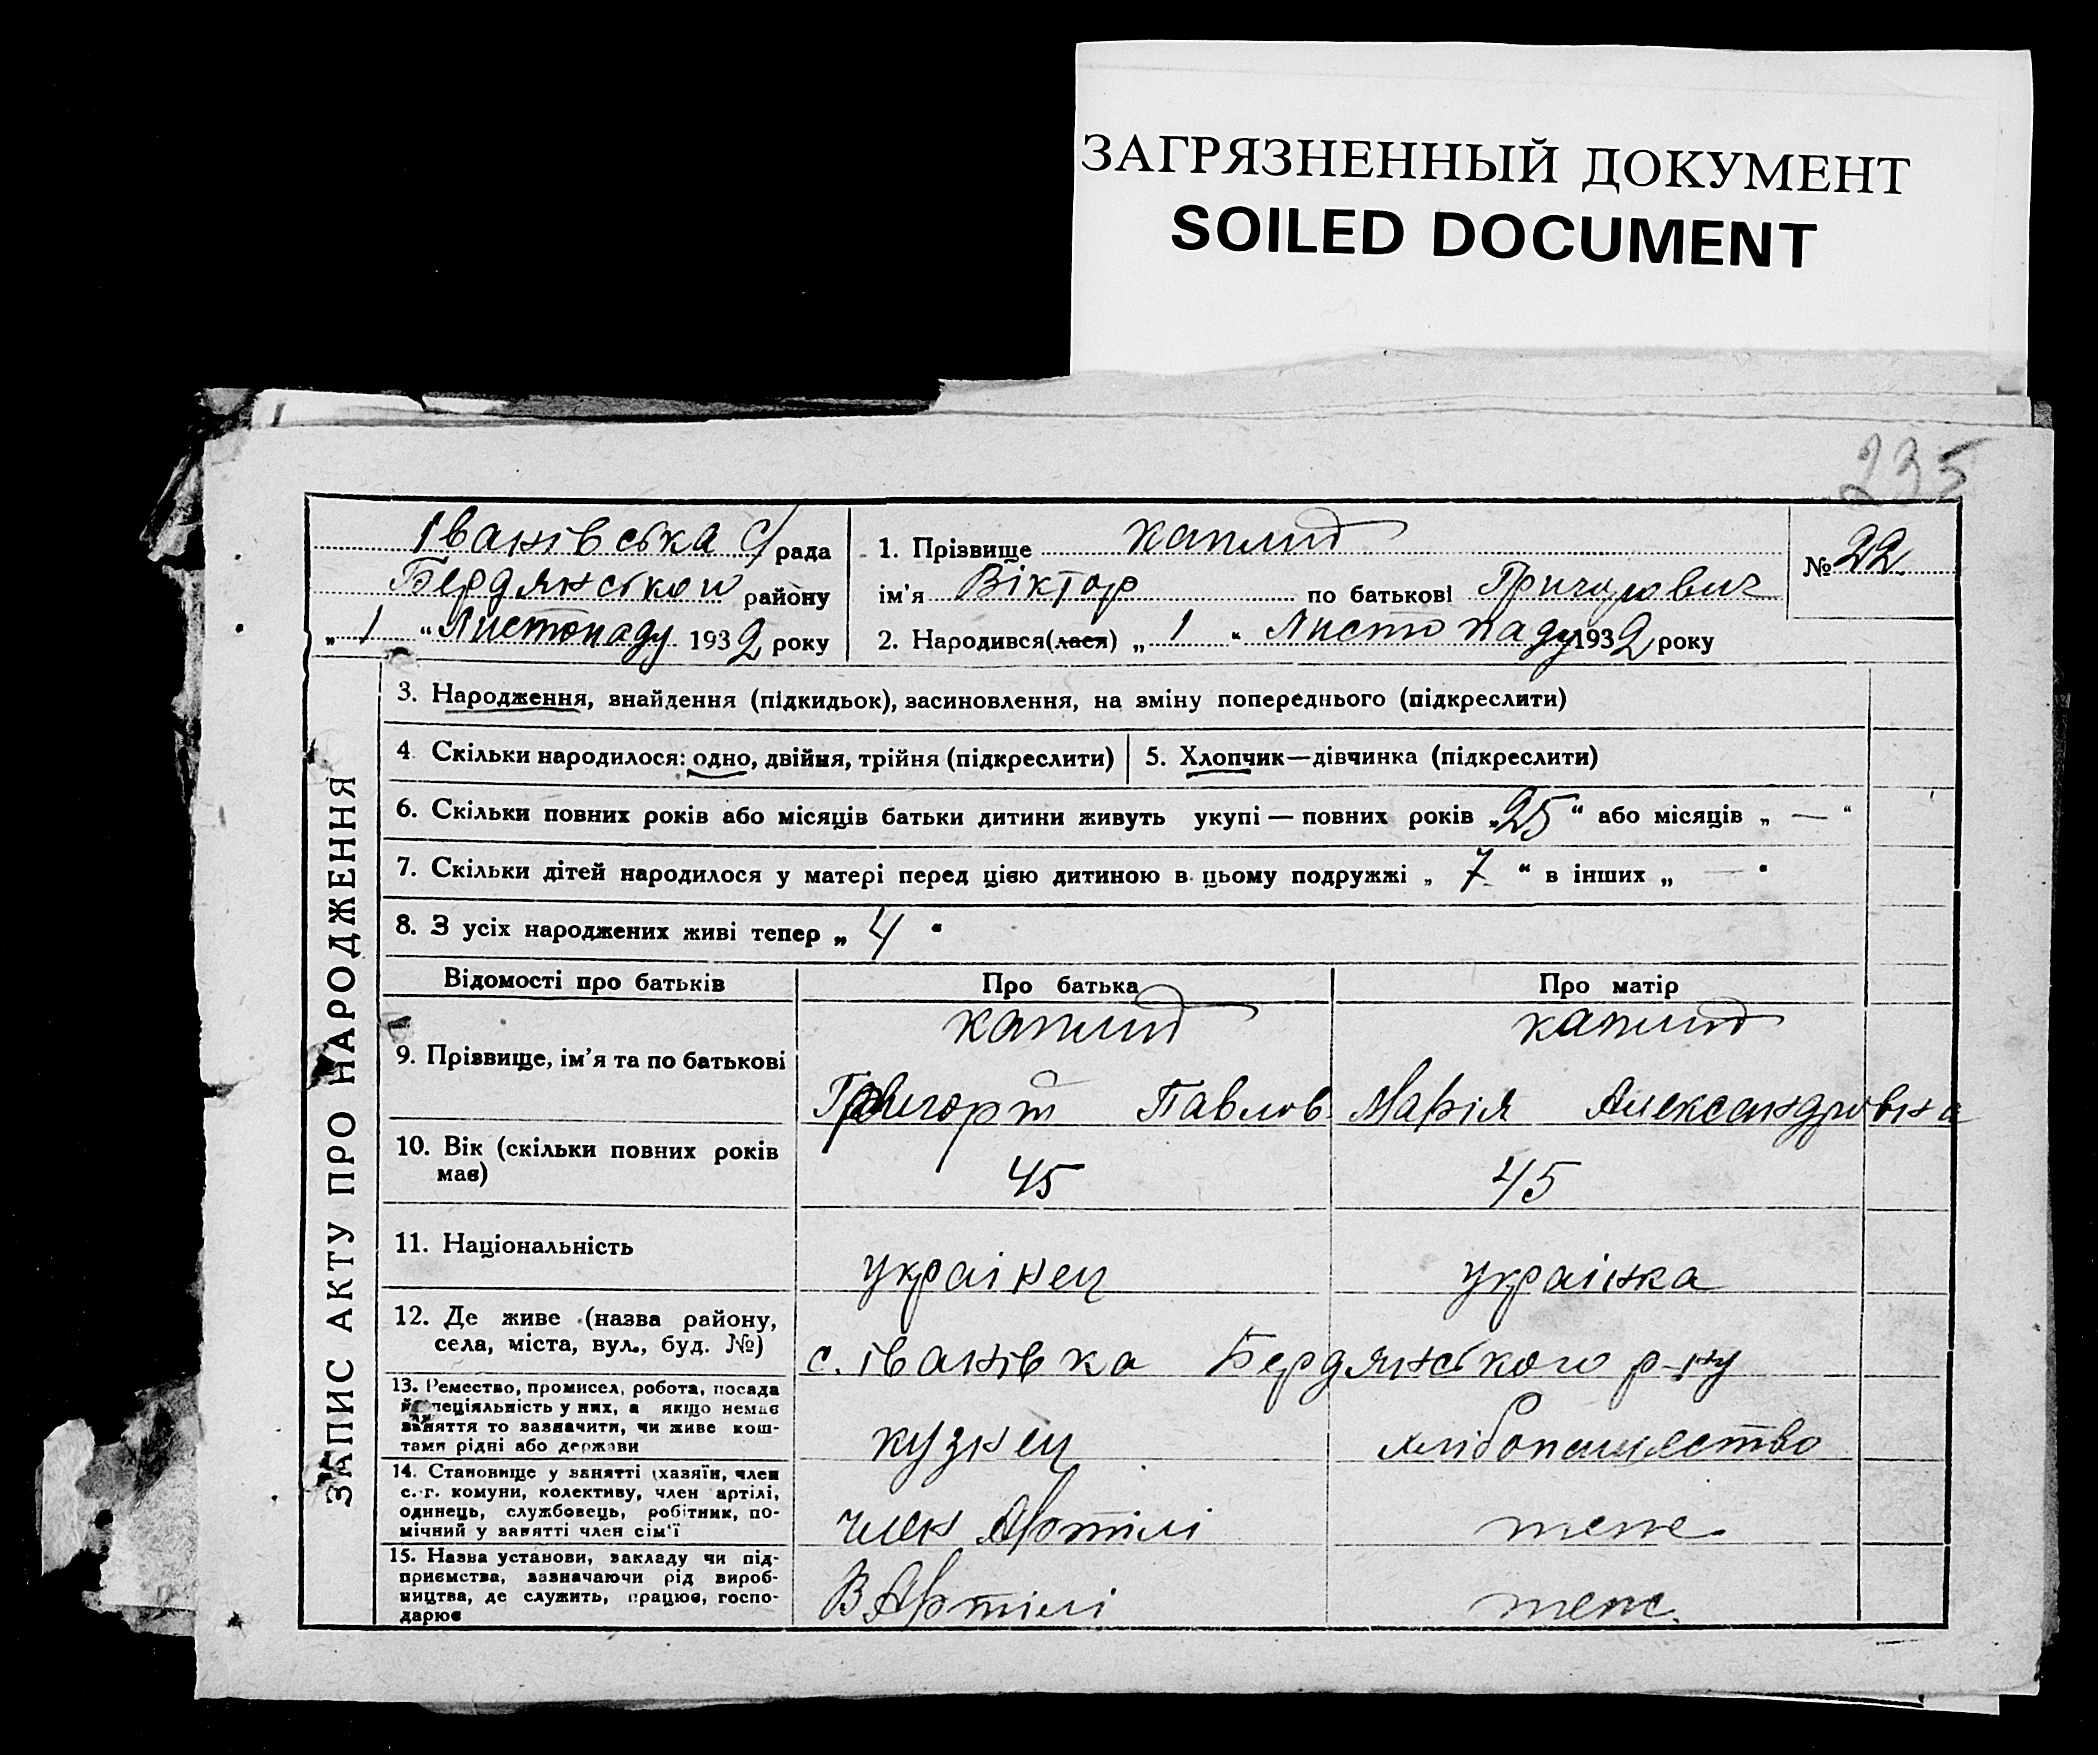 ЗАГРЯЗНЕННЫЙ ДОКУМЕНТ
SOILED DOCUMENT
235
Іванівська с/рада
Бердянського району
„ 1 “ Листопаду 1932 року
1. Прізвище
ім'я Віктор по батькові Григорович
2. Народився(лася) „ 1 “ Листопаду 1932 року
№ 22
ЗАПИС АКТУ ПРО НАРОДЖЕННЯ
3. Народження, знайдення (підкидьок), засиновлення, на зміну попереднього (підкреслити)
4 Скільки народилося: одно, двійня, трійня (підкреслити)
5. Хлопчик—дівчинка (підкреслити)
6. Скільки повних років або місяців батьки дитини живуть укупі — повних років „25“ або місяців „ — “
7. Скільки дітей народилося у матері перед цією дитиною в цьому подружжі „ 7 “ в інших „ — “
8. З усіх народжених живі тепер „ 4 “
Відомості про батьків Про батька Про матір
9. Прізвище, ім'я та по батькові
Григорій Павлов Марія Александровна
10. Вік (скільки повних років
має)
45 45
11. Національність
українец українка
12. Де живе (назва району,
села, міста, вул., буд. №)
с. Іванівка Бердянського р-ну
13. Ремество, промисел, робота, посада
й спеціяльність у них, а якщо немає
заняття то зазначити, чи живе кош-
тами рідні або держави
кузнец хлібопашество
14. Становище у занятті (хазяїн, член
с.-г. комуни, колективу, член артілі,
одинець, службовець, робітник, по-
мічний у занятті член сім'ї
член Артілі теж
15. Назва установи, закладу чи під-
приємства, зазначаючи рід вироб-
ництва, де служить, працює, госпо-
дарює
В Артілі теж